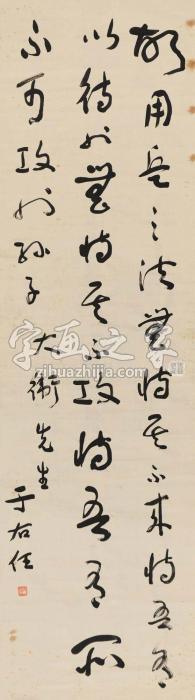 故用兵之法無恃其不來恃吾有
以待也無恃其不攻恃吾有所
不可攻也孫子 大衛先生
于右任
字画之家
zihuazhijia.com